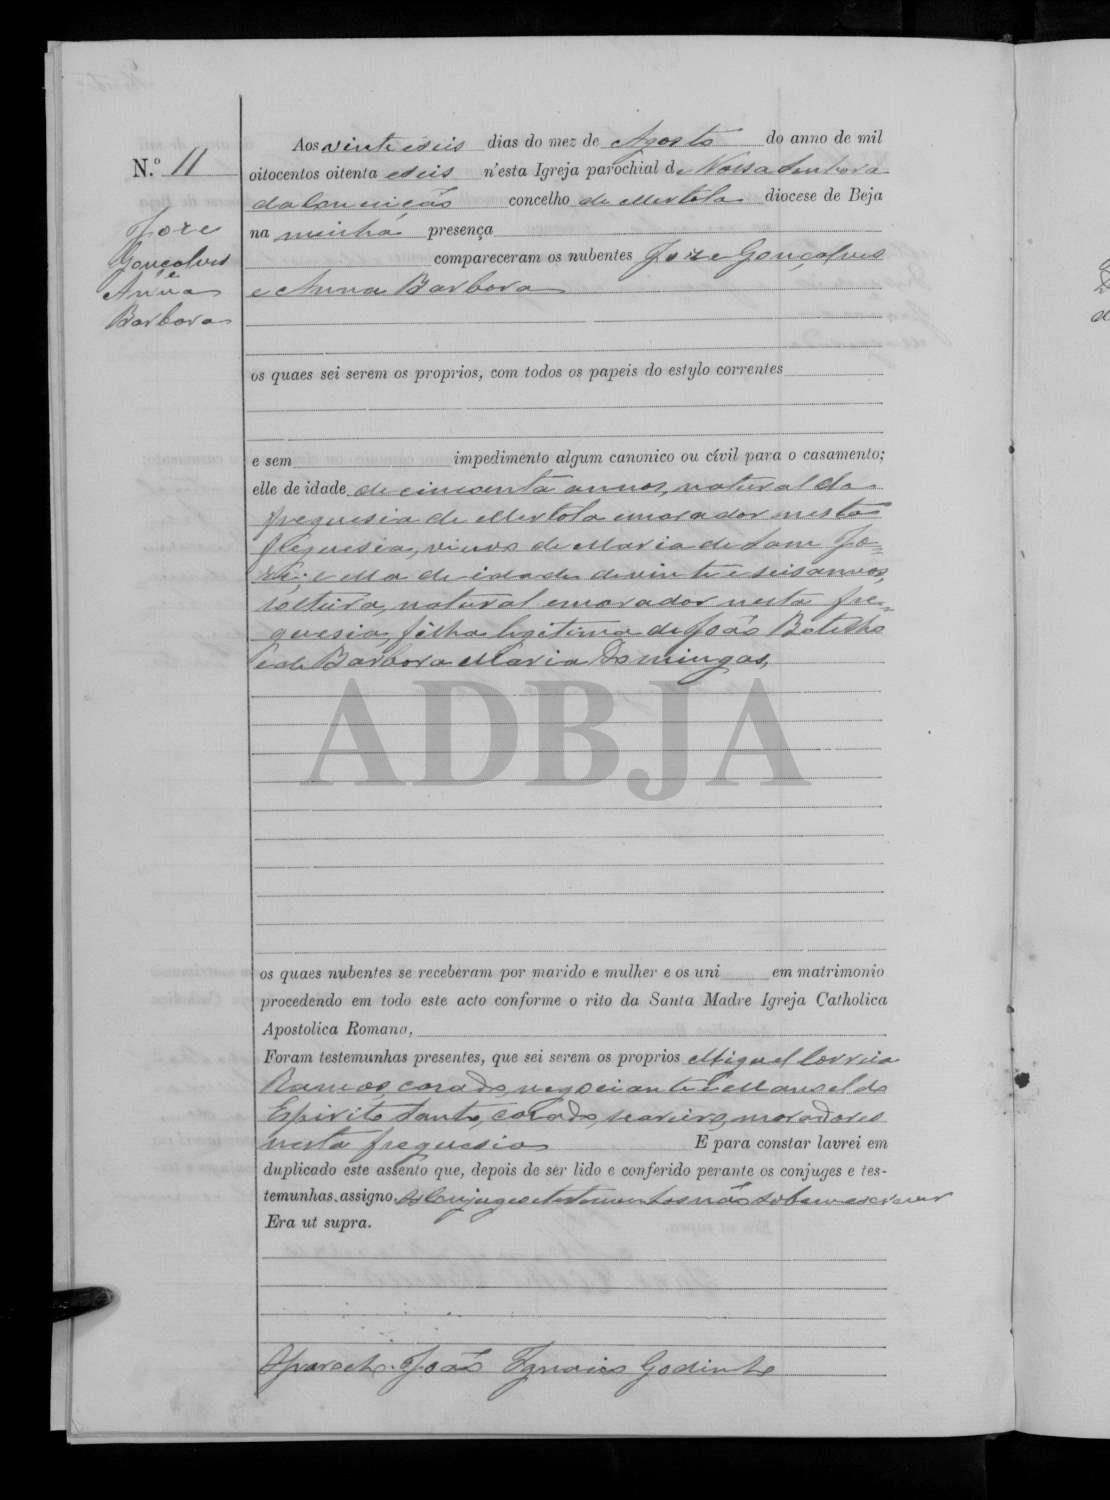 N.º 11
Joze
Gonçalves
e
Anna
Barbora
Aos vinte e seis dias do mez de Agosto do anno de mil
oitocentos oitenta e seis n'esta Igreja parochial de Nossa Senhora
da Conceição concelho de Mertola diocese de Beja
na minha presença
compareceram os nubentes Joze Gonçalves
e Anna Barbora
os quaes sei serem os proprios, com todos os papeis do estylo correntes
e sem impedimento algum canonico ou civil para o casamento;
elle de idade de cincoenta annos, natural da
freguesia de Mertola e morador nesta
freguesia, viuvo de Maria de Sam Jo=
zé; e ella de idade de vinte e seis annos,
solteira, natural e morador nesta fre=
guesia, filha legitima de João Botelho
e de Barbora Maria Domingas,
ADBJA
os quaes nubentes se receberam por marido e mulher e os uni em matrimonio
procedendo em todo este acto conforme o rito da Santa Madre Igreja Catholica
Apostolica Romana,
Foram testemunhas presentes, que sei serem os proprios Miguel Correia
Ramos, casado, negociante e Manoel do
Espirito Santo, casado, moradores
nesta freguesia E para constar lavrei em
duplicado este assento que, depois de ser lido e conferido perante os conjuges e tes-
temunhas, assigno. Os Conjuges e testemunhas não sabem escrever
Era ut supra.
O Parocho João Ignacio Godinho